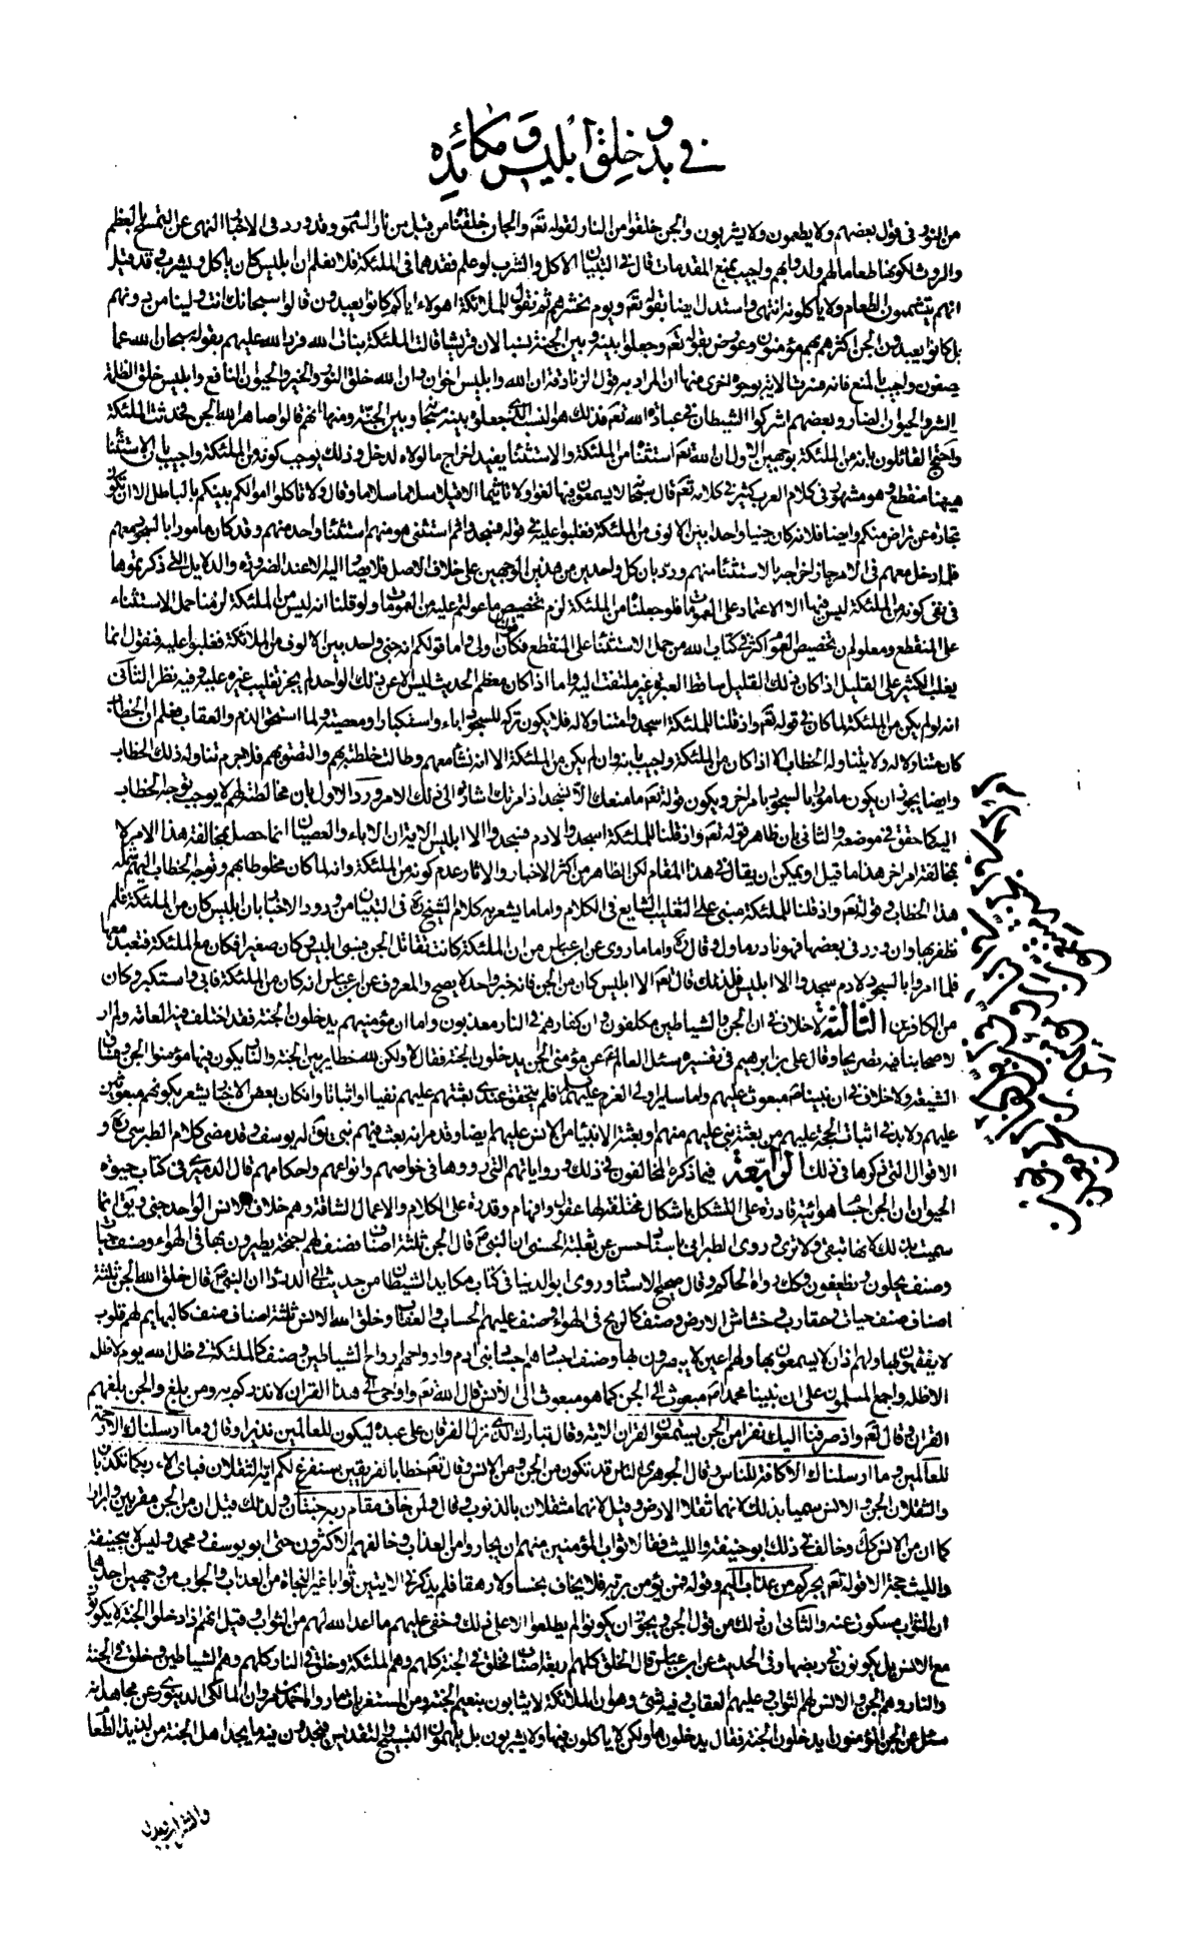 في بدو خلق ابليس و مكائده
من النور في قول بعضهم ولا يطعمون ولا يشربون والجن خلقوا من النار لقوله تعم والجان خلقناه من قبل من نار السموم وقد ورد في الاخبار النهي عن التمسح بالعظم
والروث لكونهما طعاما لهم ولدوابهم واجيب بمنع المقدمات قال في التبيان الاكل والشرب لو علم فقدهما في الملئكة فلا نعلم ان ابليس كان ياكل ويشرب وقد قيل
انهم يتشممون الطعام ولا ياكلونه انتهى واستدل ايضا بقوله تعم ويوم نحشرهم ثم نقول للملائكة اهؤلاء اياكم كانوا يعبدون قالوا سبحانك انت ولينا من دونهم
بل كانوا يعبدون الجن اكثرهم بهم مؤمنون وعورض بقوله تعم وجعلوا بينه وبين الجنة نسبا لان قريشا قالت الملئكة بنات الله فرد الله عليهم بقوله سبحان الله عما
يصفون واجيب بالمنع فانه فسرت الاية بوجوه اخرى منها ان المراد به قول الزنادقة ان الله وابليس اخوان وان الله خلق النور والخير والحيوان النافع وابليس خلق الظلمة
والشر والحيوان الضار وبعضهم اشركوا الشيطان في عبادة الله تعم فذلك هو النسب الذي جعلوه بينه سبحانه وبين الجنة ومنها انهم قالوا صاهر الله الجن فحدثت الملئكة
واحتج القائلون بانه من الملئكة بوجهين الاول ان الله تعم استثناه من الملئكة والاستثناء يفيد اخراج ما لولاه لدخل وذلك يوجب كونه من الملئكة واجيب بان الاستثناء
هيهنا منقطع وهو مشهور في كلام العرب كثير في كلامه تعم قال سبحانه لا يسمعون فيها لغوا ولا تاثيما الا قيلا سلاما سلاما وقال ولا تاكلوا اموالكم بينكم بالباطل الا ان تكون
تجارة عن تراض منكم وايضا فلانه كان جنيا واحدا بين الالوف من الملئكة فغلبوا عليه في قوله فسجدوا ثم استثنى هو منهم استثناء واحد منهم وقد كان مامورا بالسجود معهم
فلما دخل معهم في الامر جاز اخراجه بالاستثناء منهم ورد بان كل واحد من هذين الوجهين على خلاف الاصل فلا يصار اليه الا عند الضرورة والدلايل التي ذكرتموها
في نفي كونه من الملئكة ليس فيها الا الاعتماد على العمومات فلو جعلناه من الملئكة لزم تخصيص ما عولتم عليه من العمومات ولو قلنا انه ليس من الملئكة لزمنا حمل الاستثناء
على المنقطع ومعلوم ان تخصيص العموم اكثر في كتاب الله من حمل الاستثناء على المنقطع فكان قولنا اولى واما قولكم انه جني واحد بين الالوف من الملائكة فغلبوا عليه فنقول انما
يغلب الكثير على القليل اذا كان ذلك القليل ساقط العبرة غير ملتفت اليه واما اذا كان معظم الحديث ليس الا عن ذلك الواحد لم يجز تغليب غيره عليه وفيه نظر الثاني
انه لو لم يكن من الملئكة لما كان في قوله تعم واذ قلنا للملئكة اسجدوا متناولا له فلا يكون تركه للسجود اباء واستكبارا ومعصية ولما استحق الذم والعقاب فعلم ان الخطاب
كان متناولا له ولا يتناوله الخطاب الا اذا كان من الملئكة واجيب بانه وان لم يكن من الملئكة الا انه نشا معهم وطالت خلطته بهم والتصق بهم فلا جرم تناوله ذلك الخطاب
وايضا يجوز ان يكون مامورا بالسجود بامر اخر ويكون قوله تعم ما منعك الا تسجد اذ امرتك اشارة الى ذلك الامر ورد الاول بان مخالطته لهم لا يوجب توجه الخطاب
اليه كما حقق في موضعه والثاني بان ظاهر قوله تعم واذ قلنا للملئكة اسجدوا لادم فسجدوا الا ابليس الاية ان الاباء والعصيان انما حصل بمخالفة هذا الامر لا
بمخالفة امر اخر هذا ما قيل او يمكن ان يقال في هذا المقام لكن الظاهر من اكثر الاخبار والاثار عدم كونه من الملئكة وانه لما كان مخلوطا بهم وتوجه الخطاب اليهم شمله
هذا الخطاب وقوله تعم واذ قلنا للملئكة مبني على التغليب الشايع في الكلام واما ما يشعر به كلام الشيخ ره في التبيان من ورود الاخبار بان ابليس كان من الملئكة فلم
نظفر بها وان ورد في بعضها فهو نادر ماول وقال ره واما ما روى عن ابن عباس من ان الملئكة كانت تقاتل الجن فسبي ابليس وكان صغيرا فكان مع الملئكة فتعبد معها
فلما امروا بالسجود لادم سجدوا الا ابليس فلذلك قال تعم الا ابليس كان من الجن فانه خبر واحد لا يصح والمعروف عن ابن عباس انه كان من الملئكة فابى واستكبر وكان
من الكافرين الثالثة لا خلاف في ان الجن والشياطين مكلفون وان كفارهم في النار معذبون واما ان مؤمنيهم يدخلون الجنة فقد اختلف فيه العامة ولم ار
لاصحابنا فيه تصريحا وقال علي بن ابرهيم في تفسيره سئل العالم عن مؤمني الجن يدخلون الجنة فقال لا ولكن لله حظاير بين الجنة والنار يكون فيها مؤمنوا الجن وفساق
الشيعة ولا خلاف في ان نبينا ص مبعوث عليهم واما ساير اولي العزم عليهم فلم يتحقق عندي بعثتهم عليهم نفيا او اثباتا وان كان بعض الاخبار يشعر بكونهم مبعوثين
عليهم ولا بد في اثبات الحجة عليهم من بعثة نبي عليهم منهم او بعثة الانبياء من الانس عليهم ايضا وقد مر انه بعث فيهم نبي يق له يوسف وقد مضى كلام الطبرسي ره و
الاقوال التي ذكرها في ذلك الرابعة فيما ذكره المخالفون في ذلك ورواياتهم التي رووها في خواصهم وانواعهم واحكامهم قال الدميري في كتاب حيوة
الحيوان ان الجن اجسام هوائية قادرة على التشكل باشكال مختلفة لها عقول وافهام وقدرة على الكلام والاعمال الشاقة وهم خلاف الانس الواحد جني ويق انما
سميت بذلك لانها تبقى ولا ترى وروى الطبراني باسناد حسن عن ثعلبة الحسني ان النبي ص قال الجن ثلثة اصناف فصنف لهم اجنحة يطيرون بها في الهواء وصنف حيات
وصنف يحلون ويظعنون وكك رواه الحاكم وقال صحيح الاسناد وروى ابو الدنيا في كتاب مكايد الشيطان من حديث ابي الدرداء ان النبي ص قال خلق الله الجن ثلثة
اصناف صنف حيات وعقارب وخشاش الارض وصنف كالريح في الهواء وصنف عليهم الحساب والعقاب وخلق الله الانس ثلثة اصناف صنف كالبهايم لهم قلوب
لا يفقهون بها ولهم اذان لا يسمعون بها ولهم اعين لا يبصرون بها وصنف اجسادهم اجساد بني ادم وارواحهم ارواح الشياطين وصنف كالملئكة في ظل الله يوم لا ظل
الا ظله واجمع المسلمون على ان نبينا محمدا ص مبعوث الى الجن كما هو مبعوث الى الانس قال الله تعم واوحي الي هذا القران لانذركم به ومن بلغ والجن بلغهم
القران وقال تعم واذ صرفنا اليك نفرا من الجن يستمعون القران الاية وقال تبارك الذي نزل الفرقان على عبده ليكون للعالمين نذيرا وقال وما ارسلناك الا رحمة
للعالمين وما ارسلناك الا كافة للناس وقال الجوهري الناس قد تكون من الجن ومن الانس وقال تعم خطابا لفريقين سنفرغ لكم ايه الثقلان فباي الاء ربكما تكذبان
والثقلان الجن والانس سميا بذلك لانهما ثقلا الارض وقيل لانهما مثقلان بالذنوب وقال ولمن خاف مقام ربه جنتان ولذلك قيل ان من الجن مقربين وابرارا
كما ان من الانس كك وخالف في ذلك ابو حنيفة والليث فقالا ثواب المؤمنين منهم ان يجاروا من العذاب وخالفهم الاكثرون حتى ابو يوسف ومحمد وليس لابي حنيفة
والليث حجة الا قوله تعم يجركم من عذاب اليم وقوله فمن يؤمن بربه فلا يخاف بخسا ولا رهقا فلم يذكر في الايتين ثوابا غير النجاة من العذاب والجواب من وجهين احدهما
ان الثواب مسكوت عنه والثاني ان ذلك من قول الجن ويجوز ان يكونوا لم يطلعوا الا على ذلك وخفي عليهم ما اعد الله لهم من الثواب وقيل انهم اذا دخلوا الجنة لا يكونون
مع الانس بل يكونون في ربضها وفي الحديث عن ابن عباس قال الخلق كلهم اربعة اصناف فخلق في الجنة كلهم وهم الملئكة وخلق في النار كلهم وهم الشياطين وخلق في الجنة
والنار وهم الجن والانس لهم الثواب وعليهم العقاب وفيه شئ وهو ان الملائكة لا يثابون بنعيم الجنة ومن المستغربات ما رواه احمد بن مروان المالكي الدينوري عن مجاهد انه
سئل عن الجن المؤمنون ايدخلون الجنة فقال يدخلونها ولكن لا ياكلون فيها ولا يشربون بل يلهمون التسبيح والتقديس فيجدون فيه ما يجد اهل الجنة من لذيذ الطعام